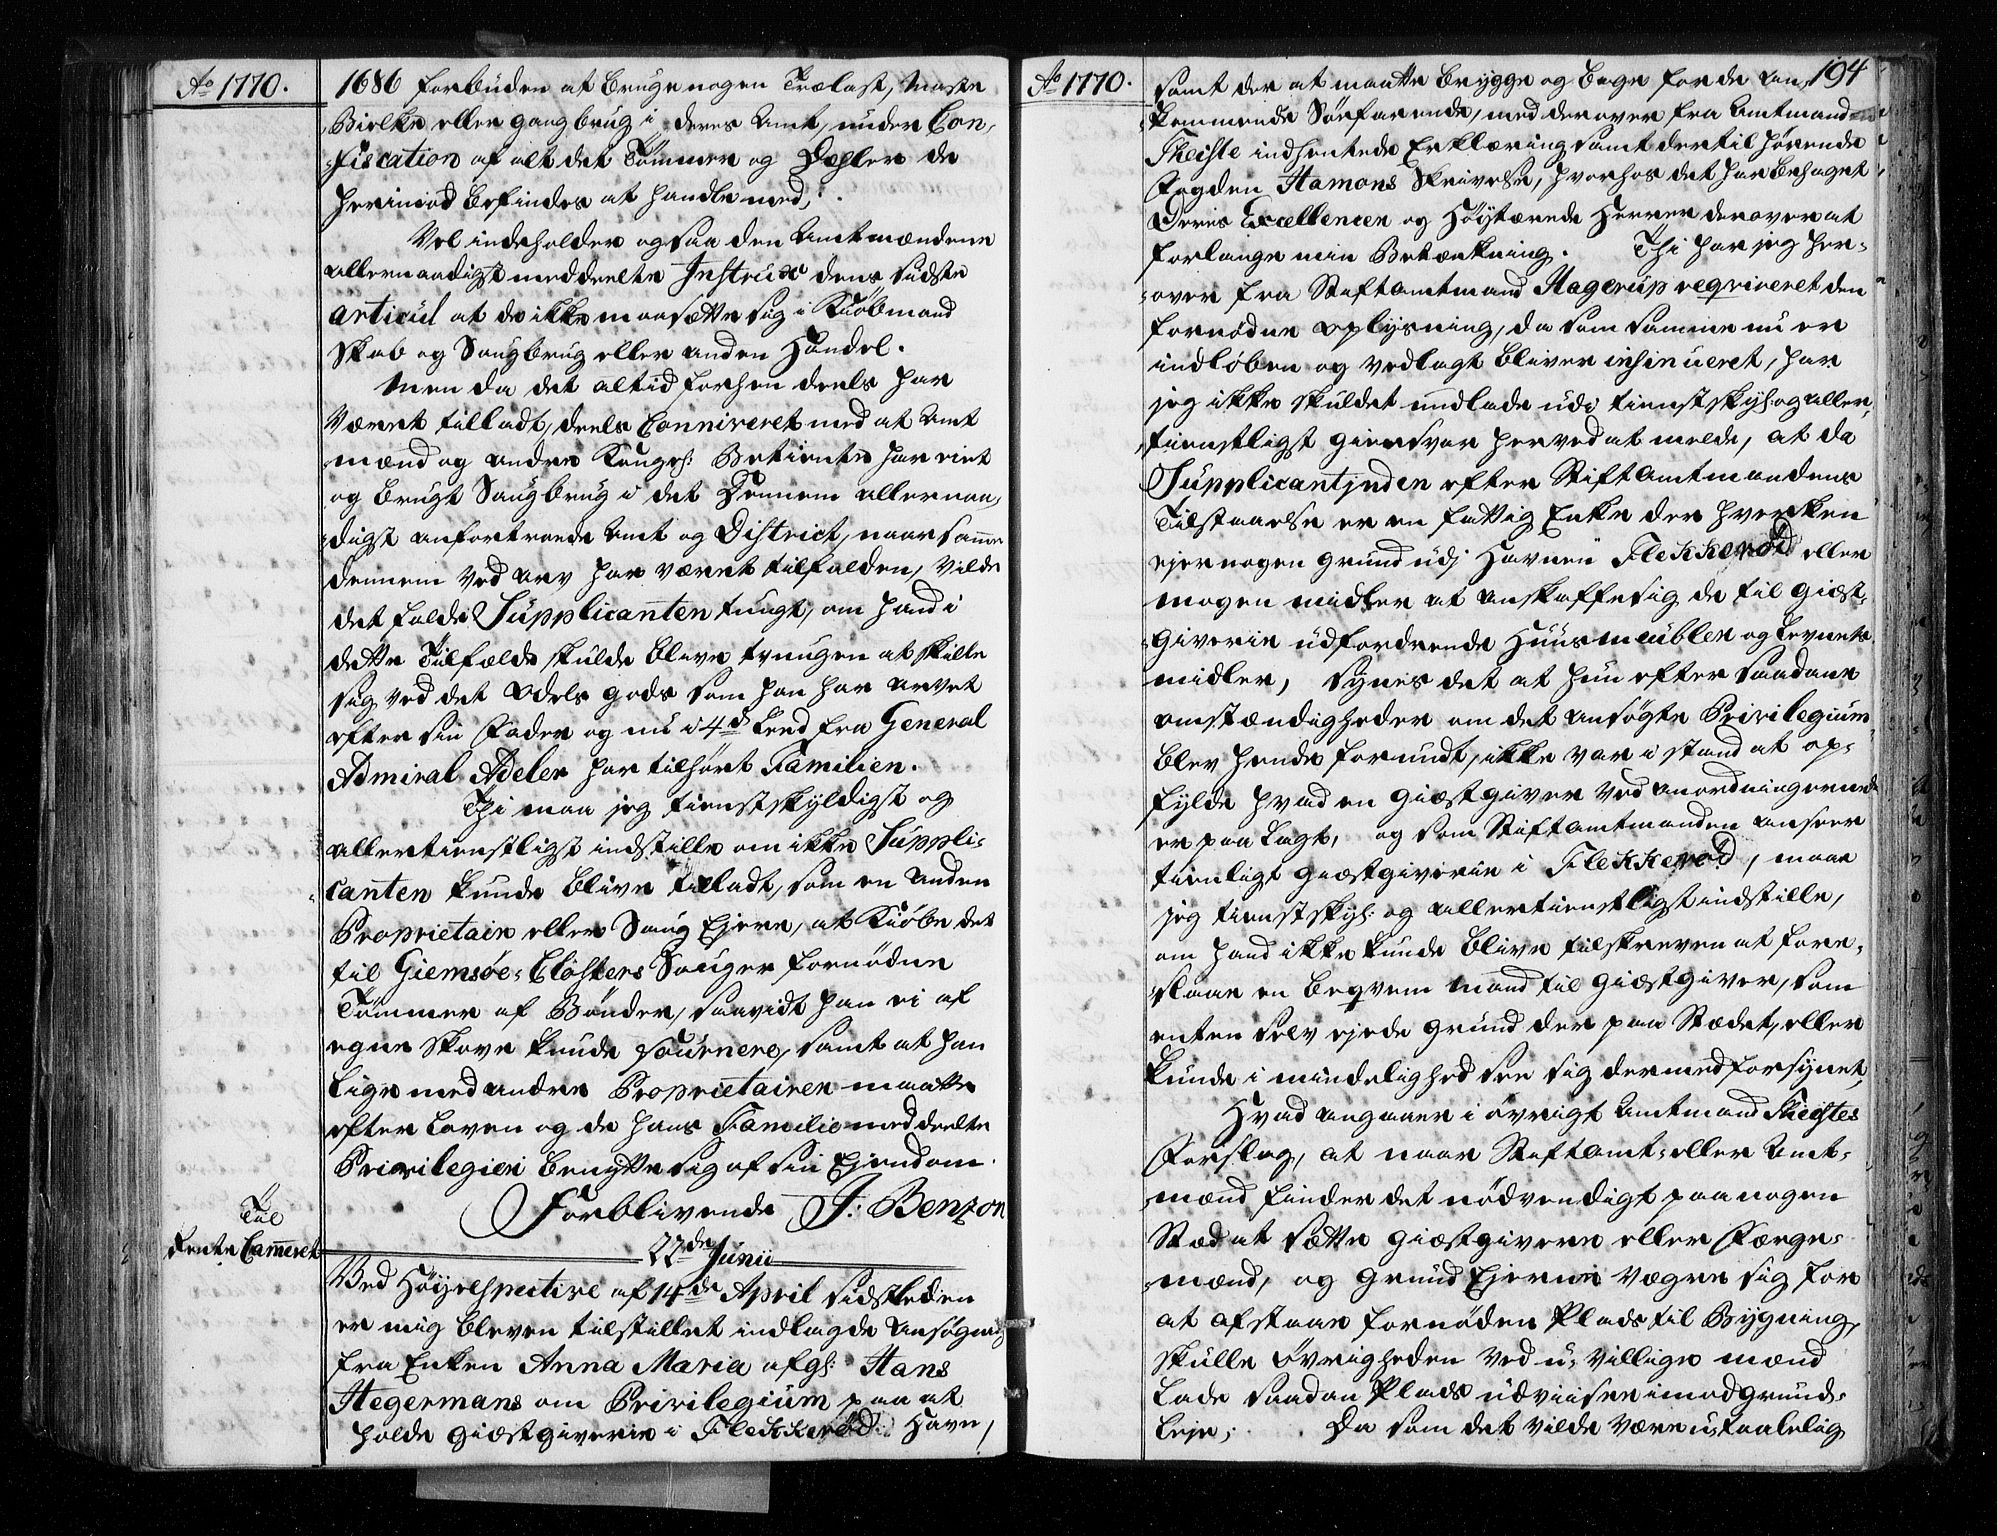 Ao 1770.
1686 forbuden at bruge nogen Trælast, Maste
Bielke eller gangbrug i deres Amt, under Con-
fiscation af alt det Tømmer og Dehler de
herimod befindes at handle med,
Vel indeholder ogsaa den Amtmændene
allernaadigst meddeelte Instrux dens sidste
Articul at de ikke maa sætte sig i Kiøbmand
skab og Saugbrug eller anden Handel.
Men da det altid forhen deels har
Været tilladt, deels Conniveret med at Amt
mænd og andre Kongel: Betiente har eiet
og brugt Saugbrug i det Dennem allernaa-
digst anfortroede Amt og District, naar samme
dennem ved Arv har været tilfalden, vilde
det falde Supplicanten tungt, om hand i
dette Tilfælde skulde blive tvungen at skille
sig ved det Odels gods som han har arvet
efter sin Fader og nu i 4de Leed fra General
Admiral Adeler har tilhørt Familien.
Thi maa jeg tienstskyldigst og
allertienstligst indstille om ikke Suppli-
canten kunde blive tilladt, som en anden
Proprietair eller Saug Ejere, at Kiøbe det
til Giemsøe-Closters Sauger fornødne
Tømmer af Bønder, saavidt han ei af
egne Skove kunde fournere, samt at han
lige med andre Proprietairer maatte
efter Loven og de hans Familie meddeelte
Privilegier benytte sig af sin Ejendom.
Forblivende J: Benzon
Til
Rente Cammeret
22de Junii
Ved Høyrespective af 14de April sidstleden
er mig bleven tilstillet indlagde Ansøgning
fra Enken Anna Maria afgl: Hans
Hegermans om Privilegium paa at
holde giæstgiverie i Flekkerød Havn,
Ao 1770.
194
samt der at maatte brygge og bage for de an-
kommende Søefarende, med derover fra Amtmand
Theiste indhentede Erklæring samt dertil hørende
Fogden Hamons Skrivelse, hvorhos det har behaget
Deres Excellencer og Høytærede Herrer derover at
forlange min Betænkning. Thi har jeg her-
over fra Stiftamtmand Hagerup reqvireret den
fornødne oplysning, da som samme nu er
indløben og vedlagt bliver insinueret, har
jeg ikke skuldet undlade udi tienstskyl: og aller-
tienstligst giensvar herved at melde, at da
Supplicantinden efter Stiftamtmandens
Tilstaaelse er en fattig Enke der hverken
ejer nogen grund udj Havnen Flekkerød eller
nogen midler at anskaffe sig de til giæst-
giverie udfordrende Huusmeubler og Levnets
midler, synes det at hun efter saadane
omstændigheder om det ansøgte Privilegium
blev hende forundt, ikke var i stand at op-
fylde hvad en giæstgiver ved anordningerne
er paalagt, og som Stiftamtmanden anseer
tienligt giæstgiverie i Flekkerød, maae
jeg tienstskyl: og allertienstligst indstille,
om hand ikke kunde blive tilskreven at fore-
slaae en beqvem mand til giæstgiver, som
enten selv ejede grund der paa Stædet, eller
kunde i mindelighed see sig dermed forsynet,
Hvad angaaer i øvrigt Amtmand Theistes
Forslag, at naar Stiftamt- eller Amt-
mænd finder det nødvendigt paa nogen
Stæd at sætte giæstgivere eller Færge-
mænd, og grund Ejerne vægre sig for
at afstaae fornøden Plads til Bygning,
skulle Øvrigheden ved u-villige mænd
lade saadan Plads udviise imod grund-
leje; Da som det vilde være utaalelig